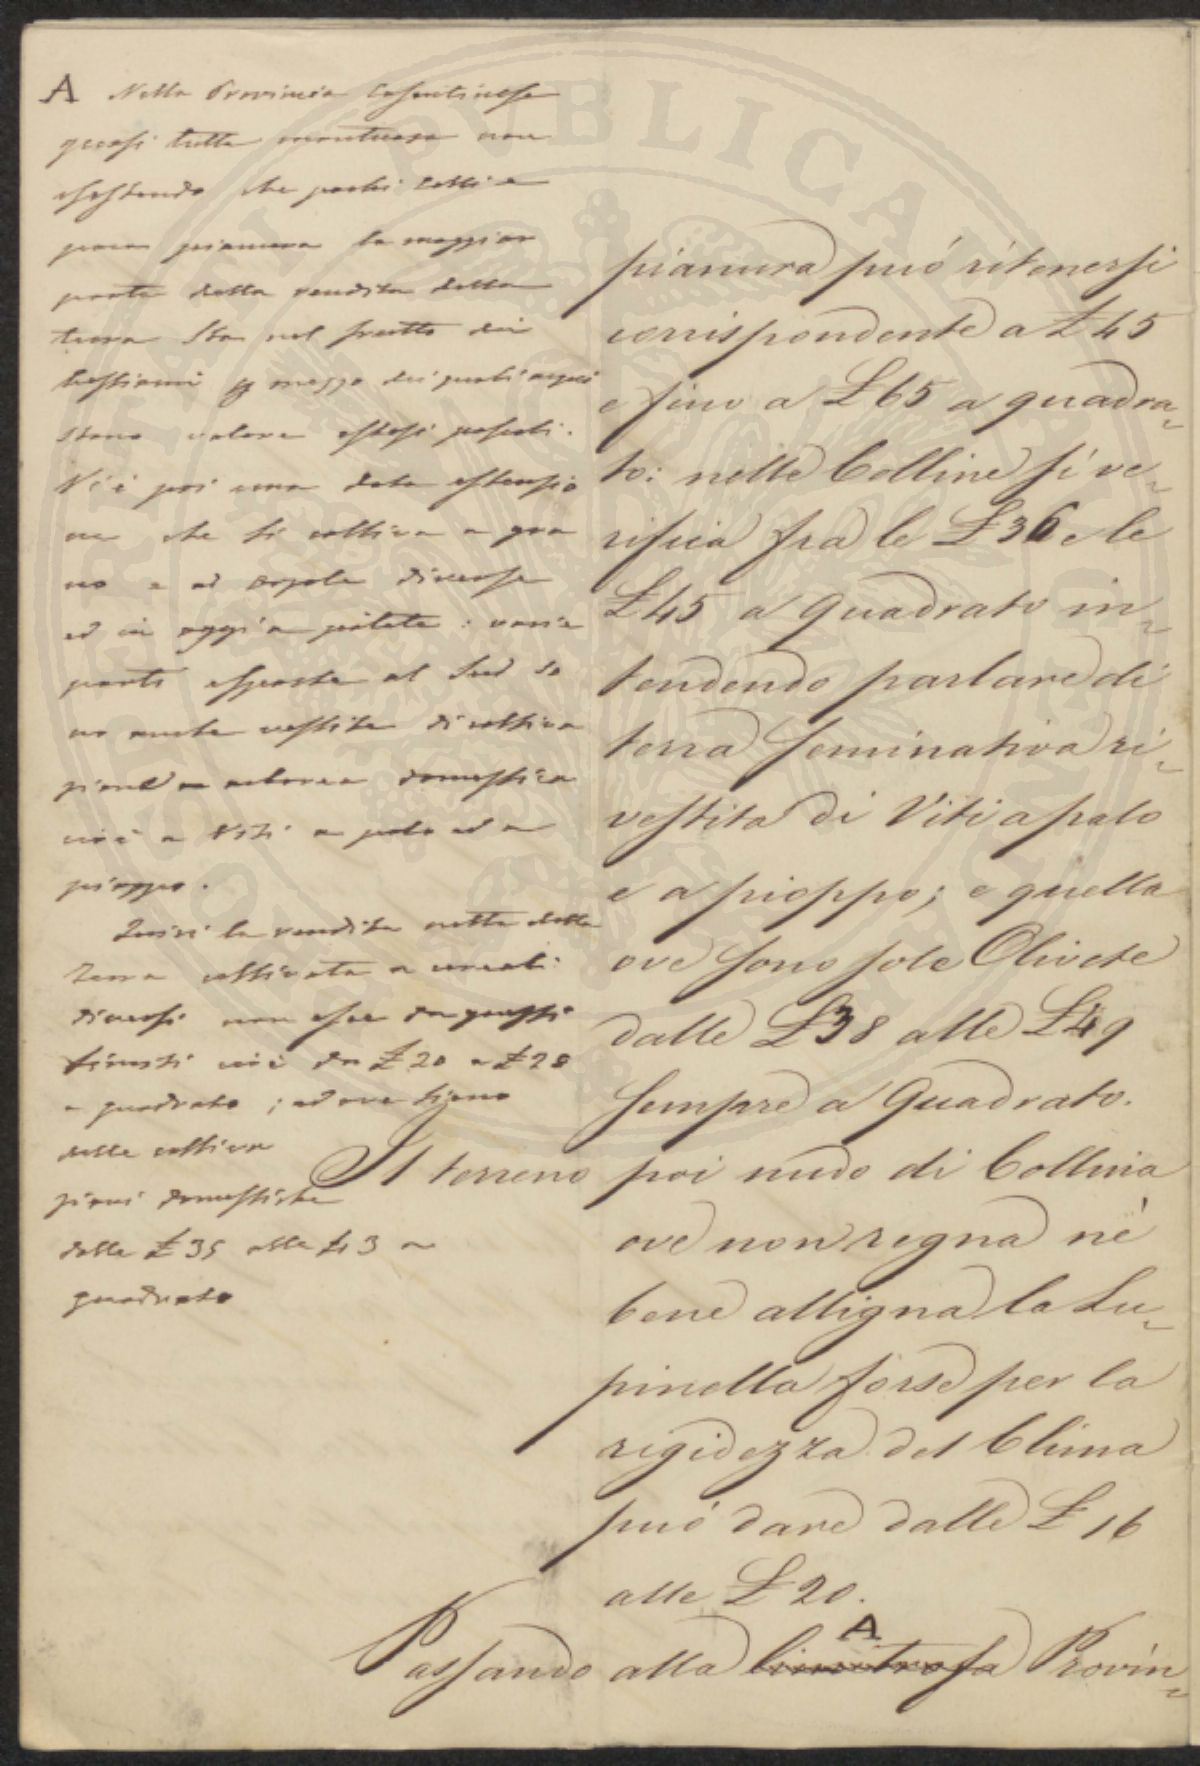 A Nella Provincia Casentinese
quasi tutta montuosa non
esistendo che pochi colli e
poca pianura la maggior
parte della rendita della
terra sta nel frutto dei
bestiami p mezzo dei quali acqui
stano valore estesi pascoli.
Vi è poi una data estensio
ne che si coltiva a gra
no e ad segale diverse
ed in oggi a patate: varie
parti esposte al Sud so
no anche vestite di coltiva
zione arborea domestica
cioè a Viti a palo ed a
pioppo.
Quivi la rendita netta della
Terra coltivata a cereali
diversi non esce da questi
limiti cioè da £ 20 a £ 28
a quadrato; ed ove siano
delle coltiva
zioni domestiche
dalle £ 35 alle 43 a
quadrato
pianura può ritenersi
corrispondente a £ 45
e fino a £ 65 a quadra=
to: nelle Colline si ve=
rifica fra le £ 36 e le
£ 45 a quadrato in=
tendendo parlare di
terra seminativa ri=
vestita di Viti a palo
e a pioppo; e quella
ove sono sole Olivete
dalle £ 38 alle £ 49
sempre a Quadrato.
Il terreno poi nudo di Collina
ove non regna nè
bene alligna la Lu=
pinella forse per la
rigidezza del Clima
può dare dalle £ 16
alle £ 20.
A
Passando alla limitrofa Provin=